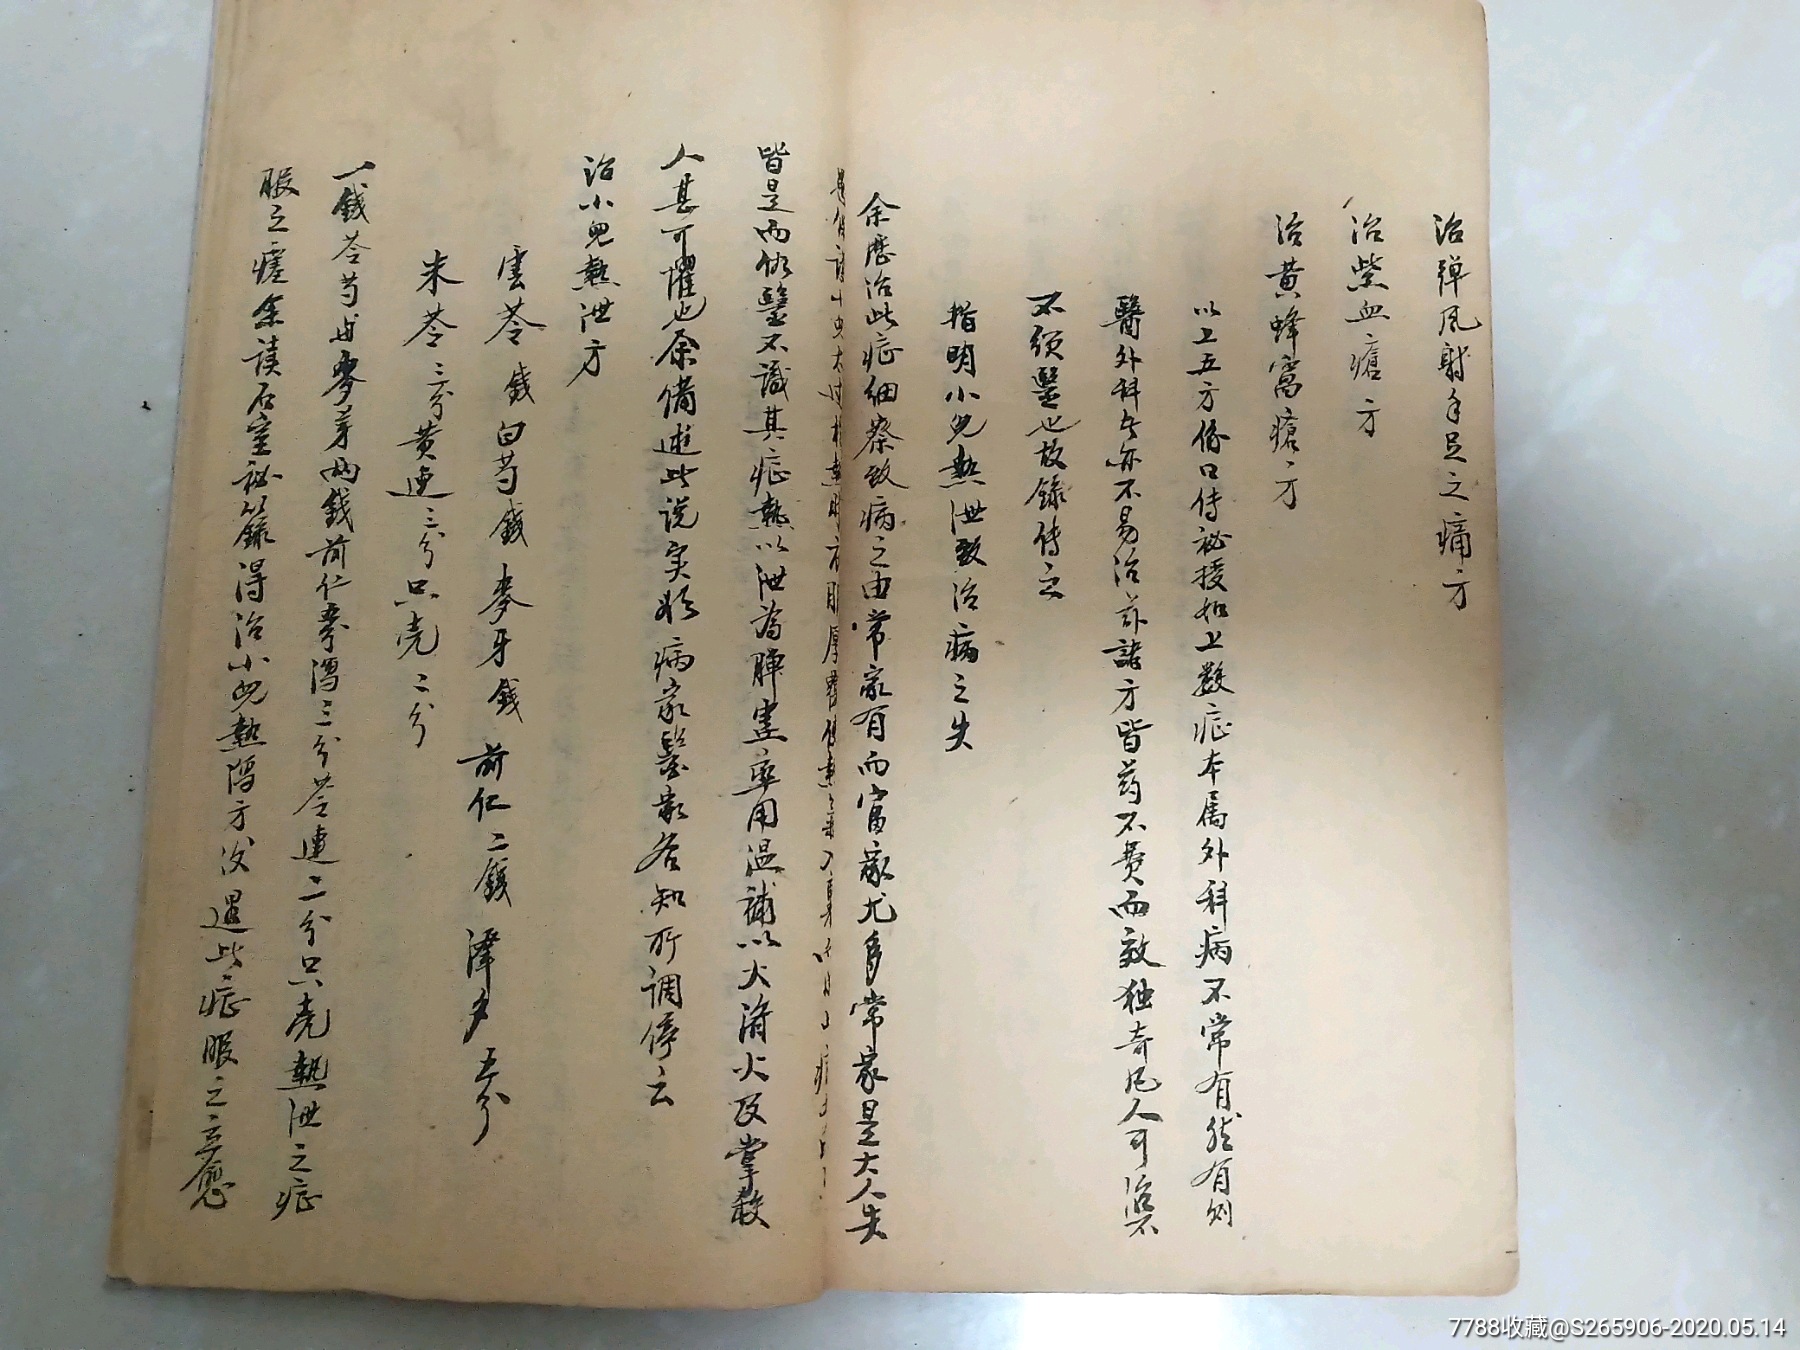 治弹風射手足之痛方
治紫血瘡方
治黄蜂窩瘡方
以上五方係口传祕授如上数症本属外科病不常有然有則
醫外科者亦不易治苐諸方皆药不费而效独奇凡人可治不
不须醫也故錄传云
指明小兒熱泄致治病之失
余歷治此症细察致病之由常家有而富家尤多常家是大人失
皆是而俗醫不識其症熱以泄為脾虚率用温補以火濟火反掌殺
人甚可懼也余備述此说实於病家醫家各知所调停云
治小兒熱泄方
雲苓錢白芍錢麥牙錢前仁二錢澤夕五分
朱苓三分黄連三分只壳二分
一錢苓芍由麥芽兩錢前仁泻三分苓連二分只壳熱泄之症
服之瘥余读石室祕錄得治小兒熱瀉方次遇此症服之立愈